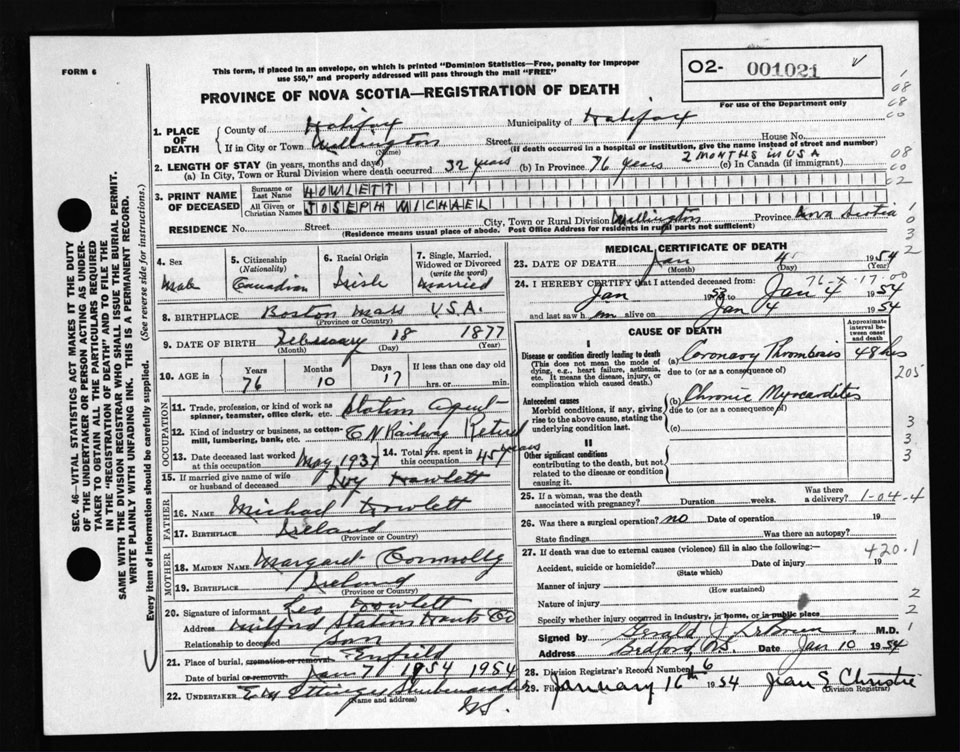 FORM 6
This form, if placed in an envelope, on which is printed "Dominion Statistics—Free, penalty for improper
use $50," and properly addressed will pass through the mail "FREE"
O2- 001021
PROVINCE OF NOVA SCOTIA—REGISTRATION OF DEATH
For use of the Department only
1. PLACE OF DEATH
County of Halifax Municipality of Halifax
If in City or Town Wellington Street House No.
(Name) (If death occurred in a hospital or institution, give the name instead of street and number)
2. LENGTH OF STAY (in years, months and days) 2 MONTHS IN USA
(a) In City, Town or Rural Division where death occurred 32 years (b) In Province 76 years (c) In Canada (if immigrant)
3. PRINT NAME OF DECEASED
Surname or Last Name HOWLETT
All Given or Christian Names JOSEPH MICHAEL
RESIDENCE No. Street City, Town or Rural Division Wellington Province Nova Scotia
(Residence means usual place of abode. Post Office Address for residents in rural parts not sufficient)
4. Sex Male
5. Citizenship (Nationality) Canadian
6. Racial Origin Irish
7. Single, Married, Widowed or Divorced (write the word) Married
8. BIRTHPLACE Boston Mass U.S.A.
(Province or Country)
9. DATE OF BIRTH February 18 1877
(Month) (Day) (Year)
10. AGE in Years 76 Months 10 Days 17 If less than one day old hrs. or min.
OCCUPATION
11. Trade, profession, or kind of work as spinner, teamster, office clerk, etc. Station Agent
12. Kind of industry or business, as cotton-mill, lumbering, bank, etc. C N Railway Retired
13. Date deceased last worked at this occupation May 1937
14. Total yrs. spent in this occupation 45 years
15. If married give name of wife or husband of deceased Howlett
FATHER
16. NAME Michael Howlett
17. BIRTHPLACE Ireland
(Province or Country)
MOTHER
18. MAIDEN NAME Margaret Connolly
19. BIRTHPLACE Ireland
(Province or Country)
20. Signature of informant Leo Howlett
Address Milford Station Hants Co
Relationship to deceased Son
21. Place of burial, cremation or removal Enfield
Date of burial or removal Jan 7 1954 1954
22. UNDERTAKER Ettinger Shubenacadie
(Name and address)
N.S.
MEDICAL CERTIFICATE OF DEATH
23. DATE OF DEATH Jan 4 1954
(Month) (Day) (Year)
24. I HEREBY CERTIFY that I attended deceased from:
Jan 1953 to Jan 4 1954
and last saw him alive on Jan 4 1954
CAUSE OF DEATH
Approximate interval between onset and death
I
Disease or condition directly leading to death
(This does not mean the mode of dying, e.g., heart failure, asthenia, etc. It means the disease, injury, or complication which caused death.)
(a) Coronary Thrombosis 48 hrs
due to (or as a consequence of)
205
Antecedent causes
Morbid conditions, if any, giving rise to the above cause, stating the underlying condition last.
(b) Chronic Myocarditis
due to (or as a consequence of)
(c)
II
Other significant conditions
contributing to the death, but not related to the disease or condition causing it.
25. If a woman, was the death associated with pregnancy? Duration weeks. Was there a delivery? 1-04-4
26. Was there a surgical operation? no Date of operation 19
State findings Was there an autopsy?
27. If death was due to external causes (violence) fill in also the following:— 420.1
Accident, suicide or homicide? Date of injury 19
(State which)
Manner of injury
(How sustained)
Nature of injury
Specify whether injury occurred in industry, in home, or in public place
Signed by Gerald J. M.D.
Address Bedford, N.S. Date Jan 10 1954
28. Division Registrar's Record Number 6
29. Filed January 16th 1954 Jean S Christie
(Division Registrar)
SEC. 46—VITAL STATISTICS ACT MAKES IT THE DUTY
OF THE UNDERTAKER OR PERSON ACTING AS UNDERTAKER TO OBTAIN ALL THE PARTICULARS REQUIRED
IN THE "REGISTRATION OF DEATH" AND TO FILE THE
SAME WITH THE DIVISION REGISTRAR WHO SHALL ISSUE THE BURIAL PERMIT.
WRITE PLAINLY WITH UNFADING INK. THIS IS A PERMANENT RECORD.
Every item of information should be carefully supplied. (See reverse side for instructions.)